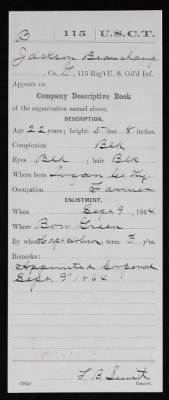 B | 115 | U.S.C.T.
Jackson Beauchamp
, Co. L, 115 Reg't U. S. Col'd Inf.
Appears on
Company Descriptive Book
of the organization named above.
DESCRIPTION.
Age 22 years; height 5 feet 8 inches.
Complexion Blk
Eyes Blk ; hair Blk
Where born Logan Co Ky
Occupation Farmer
ENLISTMENT.
When Sept 9, 1864.
Where Bow Green
By whom Capt ; term 3 y'rs.
Remarks:
Appointed Corporal
Sept. 9" 1864
Copyist.